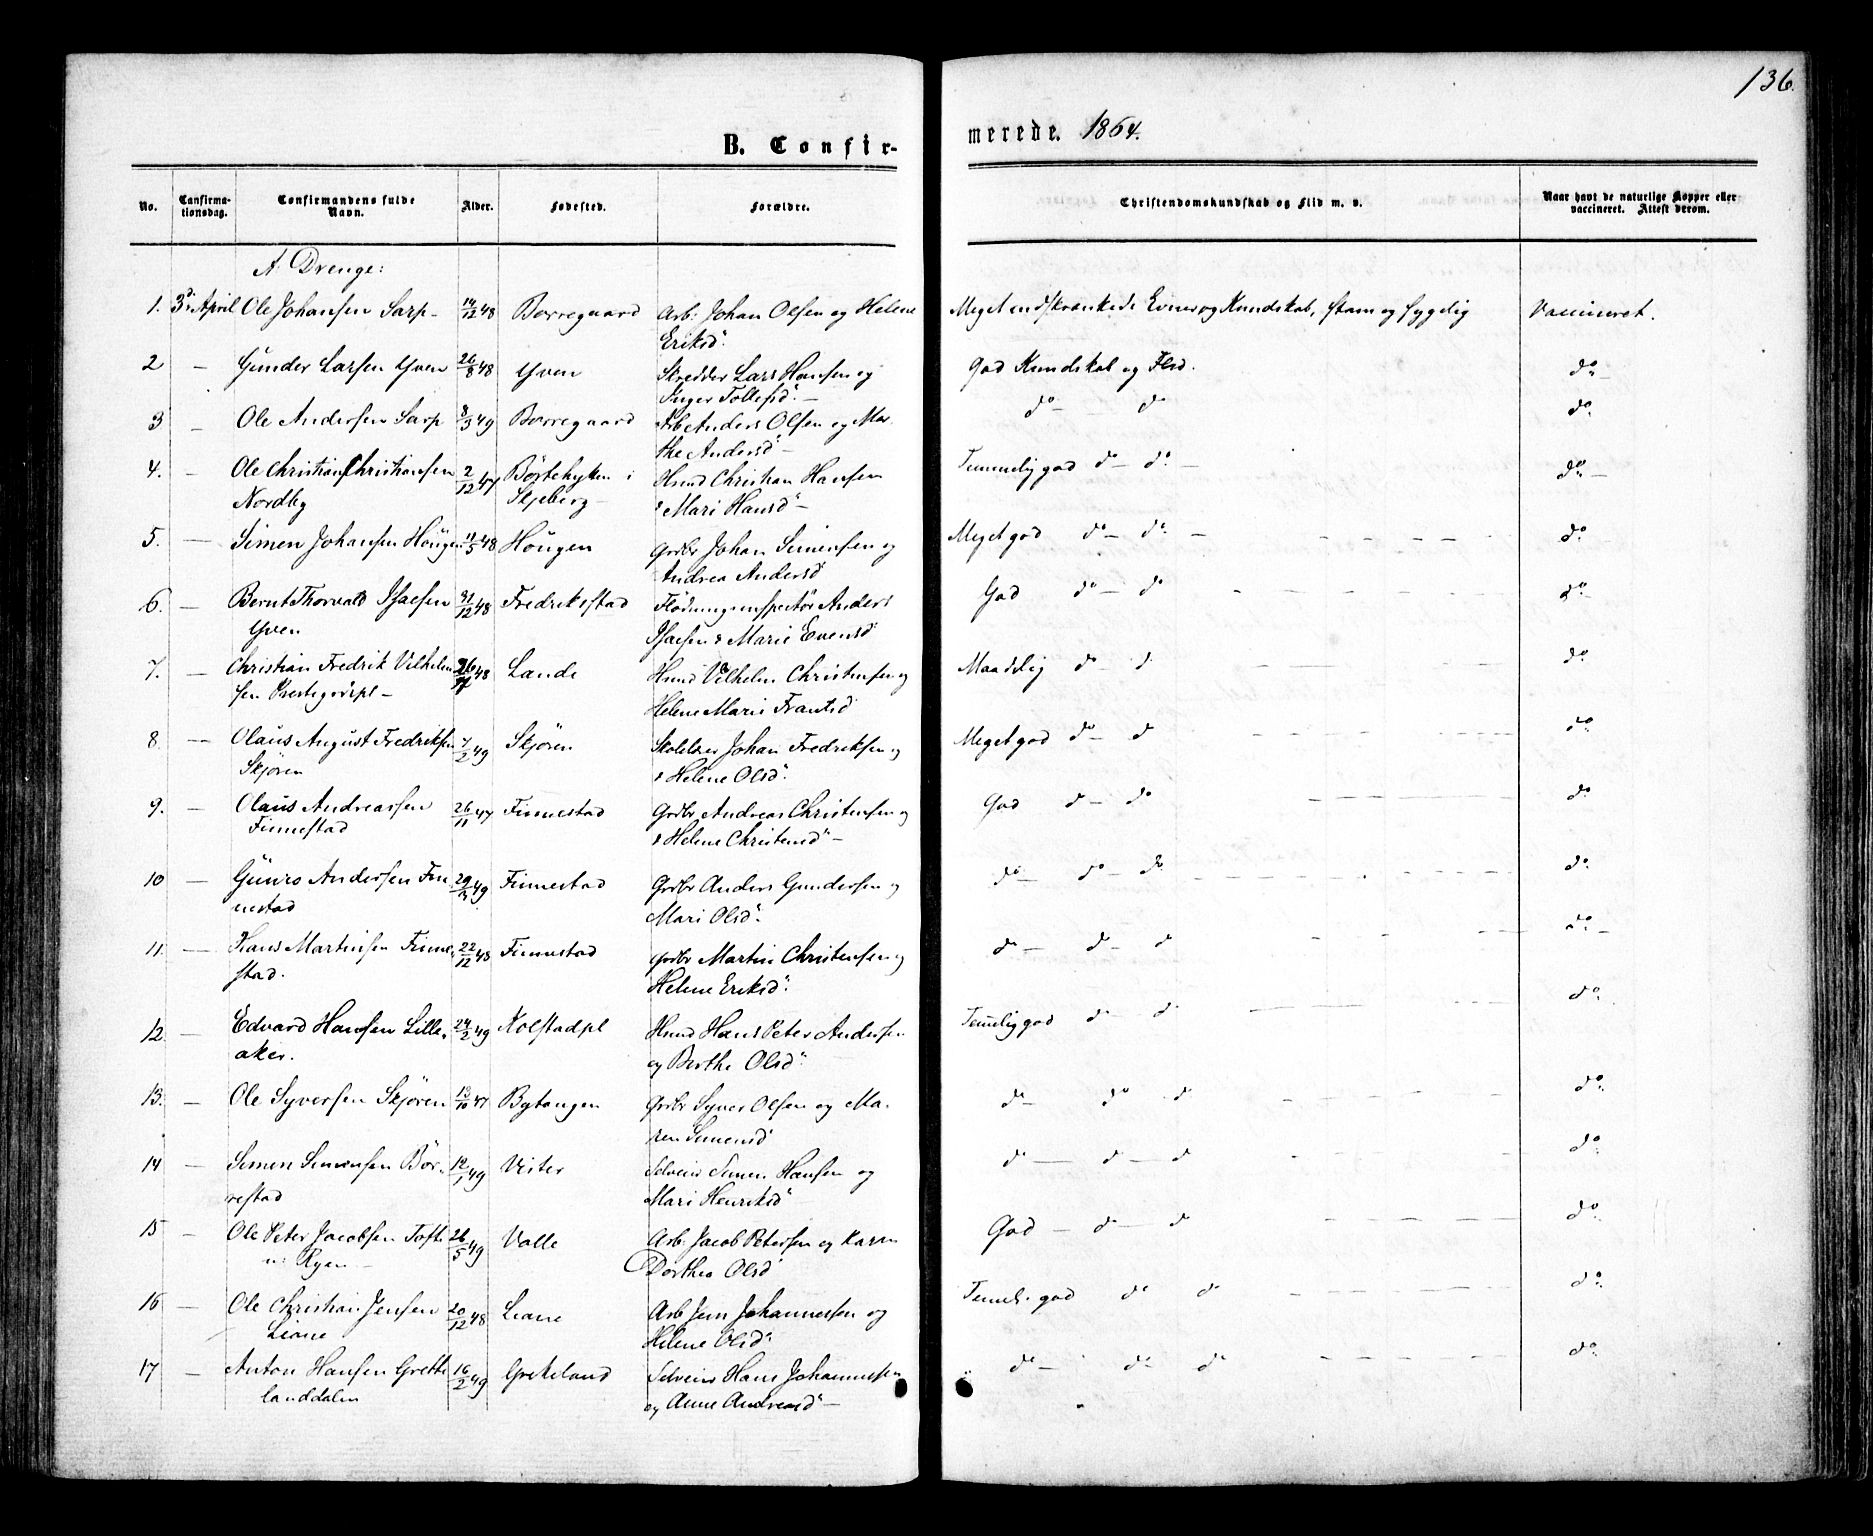 136.
B. Confir-
merede. 1864.
No.
Confirma-
tionsdag.
Confirmandens fulde
Navn.
Alder.
Fødested.
Forældre.
Christendomskundskab og Flid m. v.
Naar havt de naturlige Kopper eller
vaccineret. Attest derom.
A. Drenge:
1. 3d. April Ole Johansen Sarp 14/12 48 Borregaard Arb: Johan Olsen og Helene Meget indskrænkede Evner og Kundskab, stam og sygelig Vaccineret.
Eriksd.
2 — Gunder Larsen Yven 26/8 48 Yven Skredder Lars Hansen og God Kundskab og Flid. do
Inger Tollefsd. —
3 — Ole Andersen Sarp 8/3 49 Borregaard Arb Anders Olsen og Mar do — do do
the Andersd —
4. — Ole Christian Christiansen 2/12 47 Börtehytten i Hmd Christian Hansen Temmelig god do — do — do —
Nordby Skjeberg — & Mari Hansd —
5. — Simen Johansen Höugen 11/5 48 Höugen Grdbr Johan Simensen og Meget god do — do — do
Andrea Andersd
6. — Bernt Thorvald Isacsen 31/12 48 Fredriksstad Flödningsinspektör Anders God do — do do
Yven Isacsen & Marie Evensd
7. — Christian Fredrik Vilhelm 48 Lande Hmd Vilhelm Christensen og Maadelig do — d do
sen Prestegrdspl — Helene Marie Frantsd
8 — Olaus August Fredriksen 7/2 49 Skjören Johan Fredriksen og Meget god do — d do
Skjören & Helene Olsd.
9. — Olaus Andreassen 26/11 47 Finnestad Grdbr Andreas Christensen og God d — do do
Finnestad & Helene Christensd —
10 — Andersen Fin 49 Finnestad Grdbr Anders Gundersen og do — do — do do
nestad Mari Olsd.
11. — Hans Martinsen Finne 22/12 48 Finnestad Grdbr Martin Christensen og do — do — do do —
stad. Helene Eriksd.
12 — Edvard Hansen Lille 24/2 49 Kolstadpl Hmd Hans Peter Andersen Temelig god do — d do
aker. og Berthe Olsd.
13. — Ole Syversen Skjören 13/10 47 Bytangen Grdbr Syver Olsen og Ma- do — do d do
ren Simensd
14 — Simen Simensen Bör- 12/1 49 Vister Selveier Simen Hansen og do — d — d do
restad Mari Henriksd
15 — Ole Peter Jacobsen Tofte 26/5 49 Valle Arb: Jacob Petersen og Karen God — do — do do
Ryen — Dorthea Olsd
16 — Ole Christian Jensen 20/12 48 Liane Arb Jens Johannessen og Temeli. god do do do
Liane Helene Olsd
17 — Anton Hansen Grette 16/2 49 Selveier Hans Johannessen do — do do do
landdalen og Anne Andreasd —